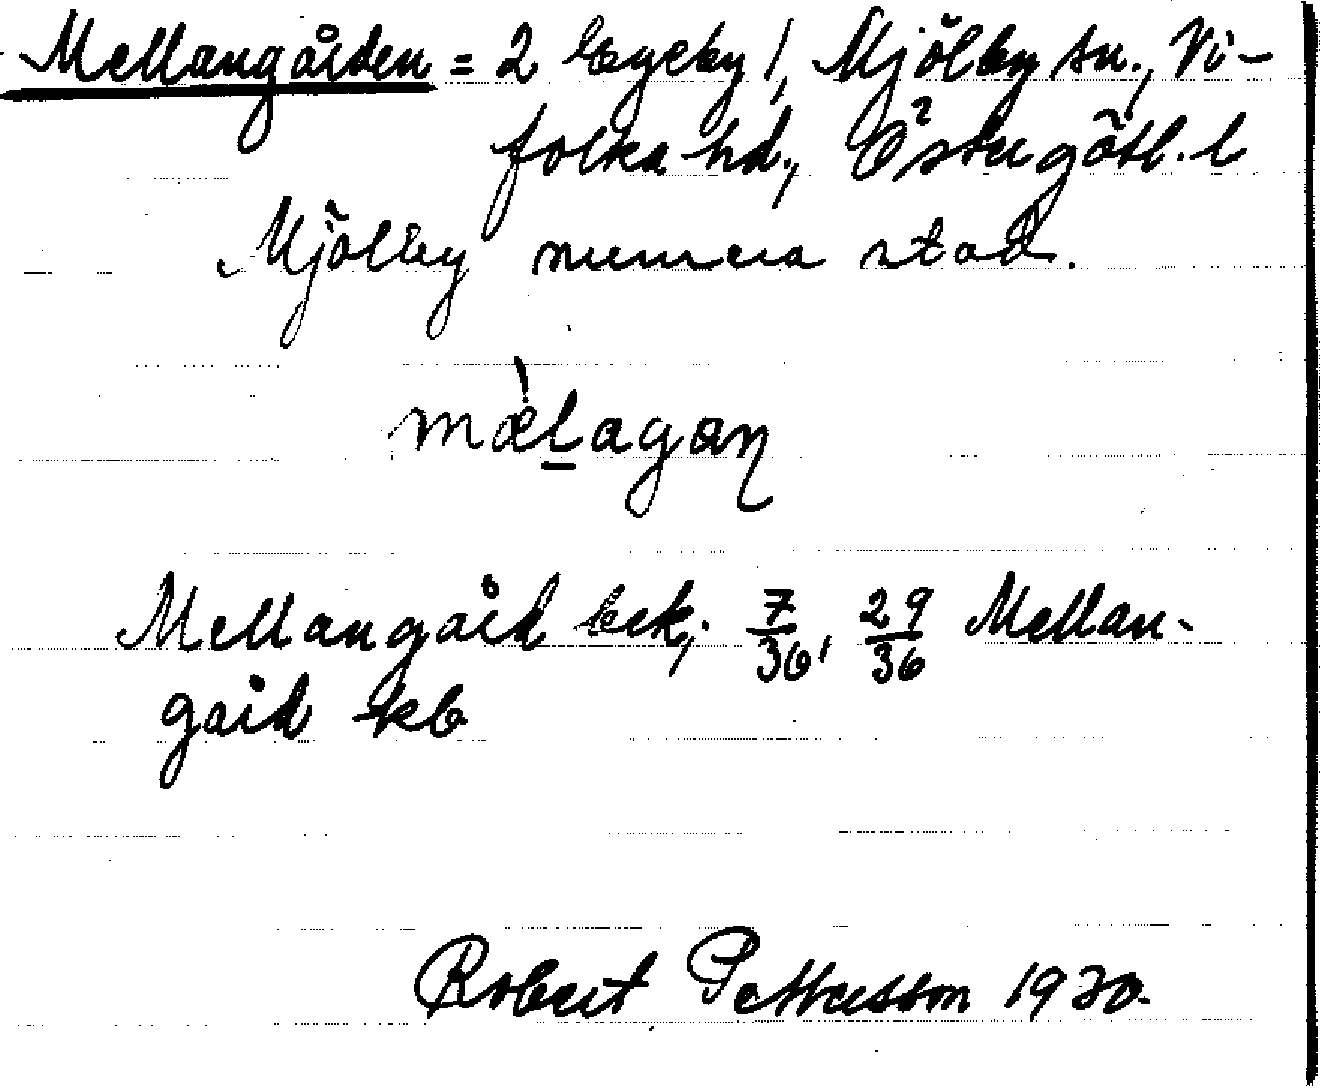 Mellangården = 2 Egeby 1, Mjölby sn., Vi-
folka hd., Östergötl. l
Mjölby numera stad.
mæ̀lagaɳ
Mellangård bek; 7/36, 29/36 Mellan-
gård kb
Robert Pettersson 1930